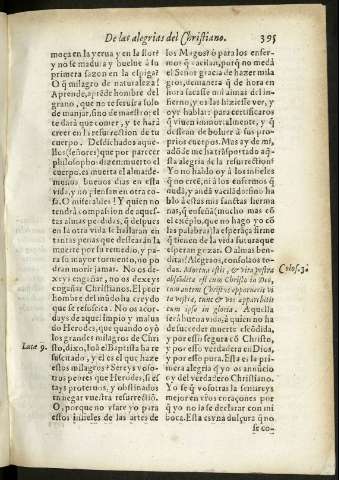 De las alegrias del Christiano. 395
moça en la yerua y en la flor? y
no se madura y buelue à su
primera sazon en la espiga?
O q̃ milagro de naturaleza!
Aprende, aprẽde hombre del
grano, que no te seruirà solo
de manjar, sino de maestro: el
te darà que comer, y te harà
creer en la resurrection de tu
cuerpo. Desdichados aque-
llos (señores) que por parecer
philosophos dizen: muerto el
cuerpo, es muerta el alma: de-
monos buenos dias en esta
vida, y no piensan en otra co-
sa. O miserables! Y quien no
tendrà compassion de aques-
tas almas perdidas, q̃ despues
en la otra vida se hallaran en
tantas penas que dessearàn la
muerte por su remedio, y pa-
ra su mayor tormento, no po
dran morir jamas. No os de-
xeys engañar, no os dexeys
engañar Christianos. El peor
hombre del mũdo ha creydo
que se resuscita. No os acor-
days de aquel impio y maluа
do Herodes, que quando oyò
los grandes milagros de Chri
Lucæ 9. sto, dixo, Ioã el Baptista ha re
suscitado, y èl es el que haze
estos milagros? Sereys vosо-
tros peores que Herodes, si es
tays proteruos, y obstinados
en negar vuestra resurrectiõ.
O, porque no vsare yo para
estos infieles de las artes de
los Magos? ò para los enfer-
mos q̃ vacilan, porq̃ no me dà
el Señor gracia de hazer mila
gros, demanera q̃ baxasse al in-
fierno, y os las hiziesse ver, y
oyr hablar: para certificaros
q̃ viuen immortalmente, y q̃
dessean de boluer à sus pro-
prios cuerpos. Mas ay de mi,
adõ de me ha trasportado aq̃-
sta alegria de la resurrection?
Yo no hablo oy à los infieles
q̃ no creẽ, ni à los enfermos q̃
dudã, y andã vaciládo: sino ha
blo à estas mis sanctas herma
nas, q̃ enseñã (mucho mas cõ
el exẽplo, que no hago yo cõ
las palabras) la esperãça firme
q̃ tienen de la vida futura que
esperan gozar. O almas ben-
ditas! Alegraos, consolaos to-
das. Mortua estis, & vita vestra Colos. 3.
abscõdita est cum Christo in Deo,
cum autem Christus apparuerit vi
ta vestra, tunc & vos apparebitis
cum ipso in gloria. Aquella
serà buena vida, à quien no ha
de suceder muerte escõdida,
y por esso segura cõ Christo,
y por esso verdadera en Dios,
y por esso pura. Esta es la pri-
mera alegria q̃ yo os annũcio
oy del verdadero Christiano.
Yo se q̃ vosotras la sentireys
mejor en vr̃os coraçones por
q̃ yo no la se declarar con mi
boca. Esta es vna dulçura q̃ no
se co-